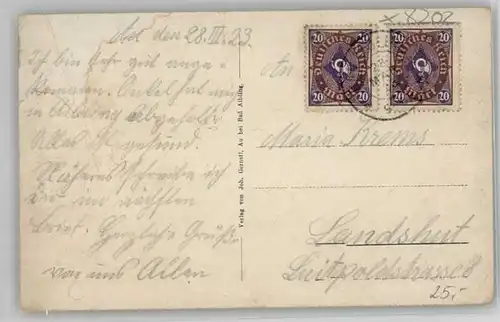 Au den 28.III.23
Ich bin sehr gut ange-
kommen. Onkel hat mich
in Aibling abgeholt.
Alles ist gesund.
Näheres schreibe ich
Dir im nächsten
Brief. Herzliche Grüße
von uns Allen
Verlag von Joh. Gernett, Au bei Bad Aibling.
x 8202
Deutsches Reich
20 Mark 20
Deutsches Reich
20 Mark 20
An
Maria Krems
Landshut
Luitpoldstrasse 8
25,-